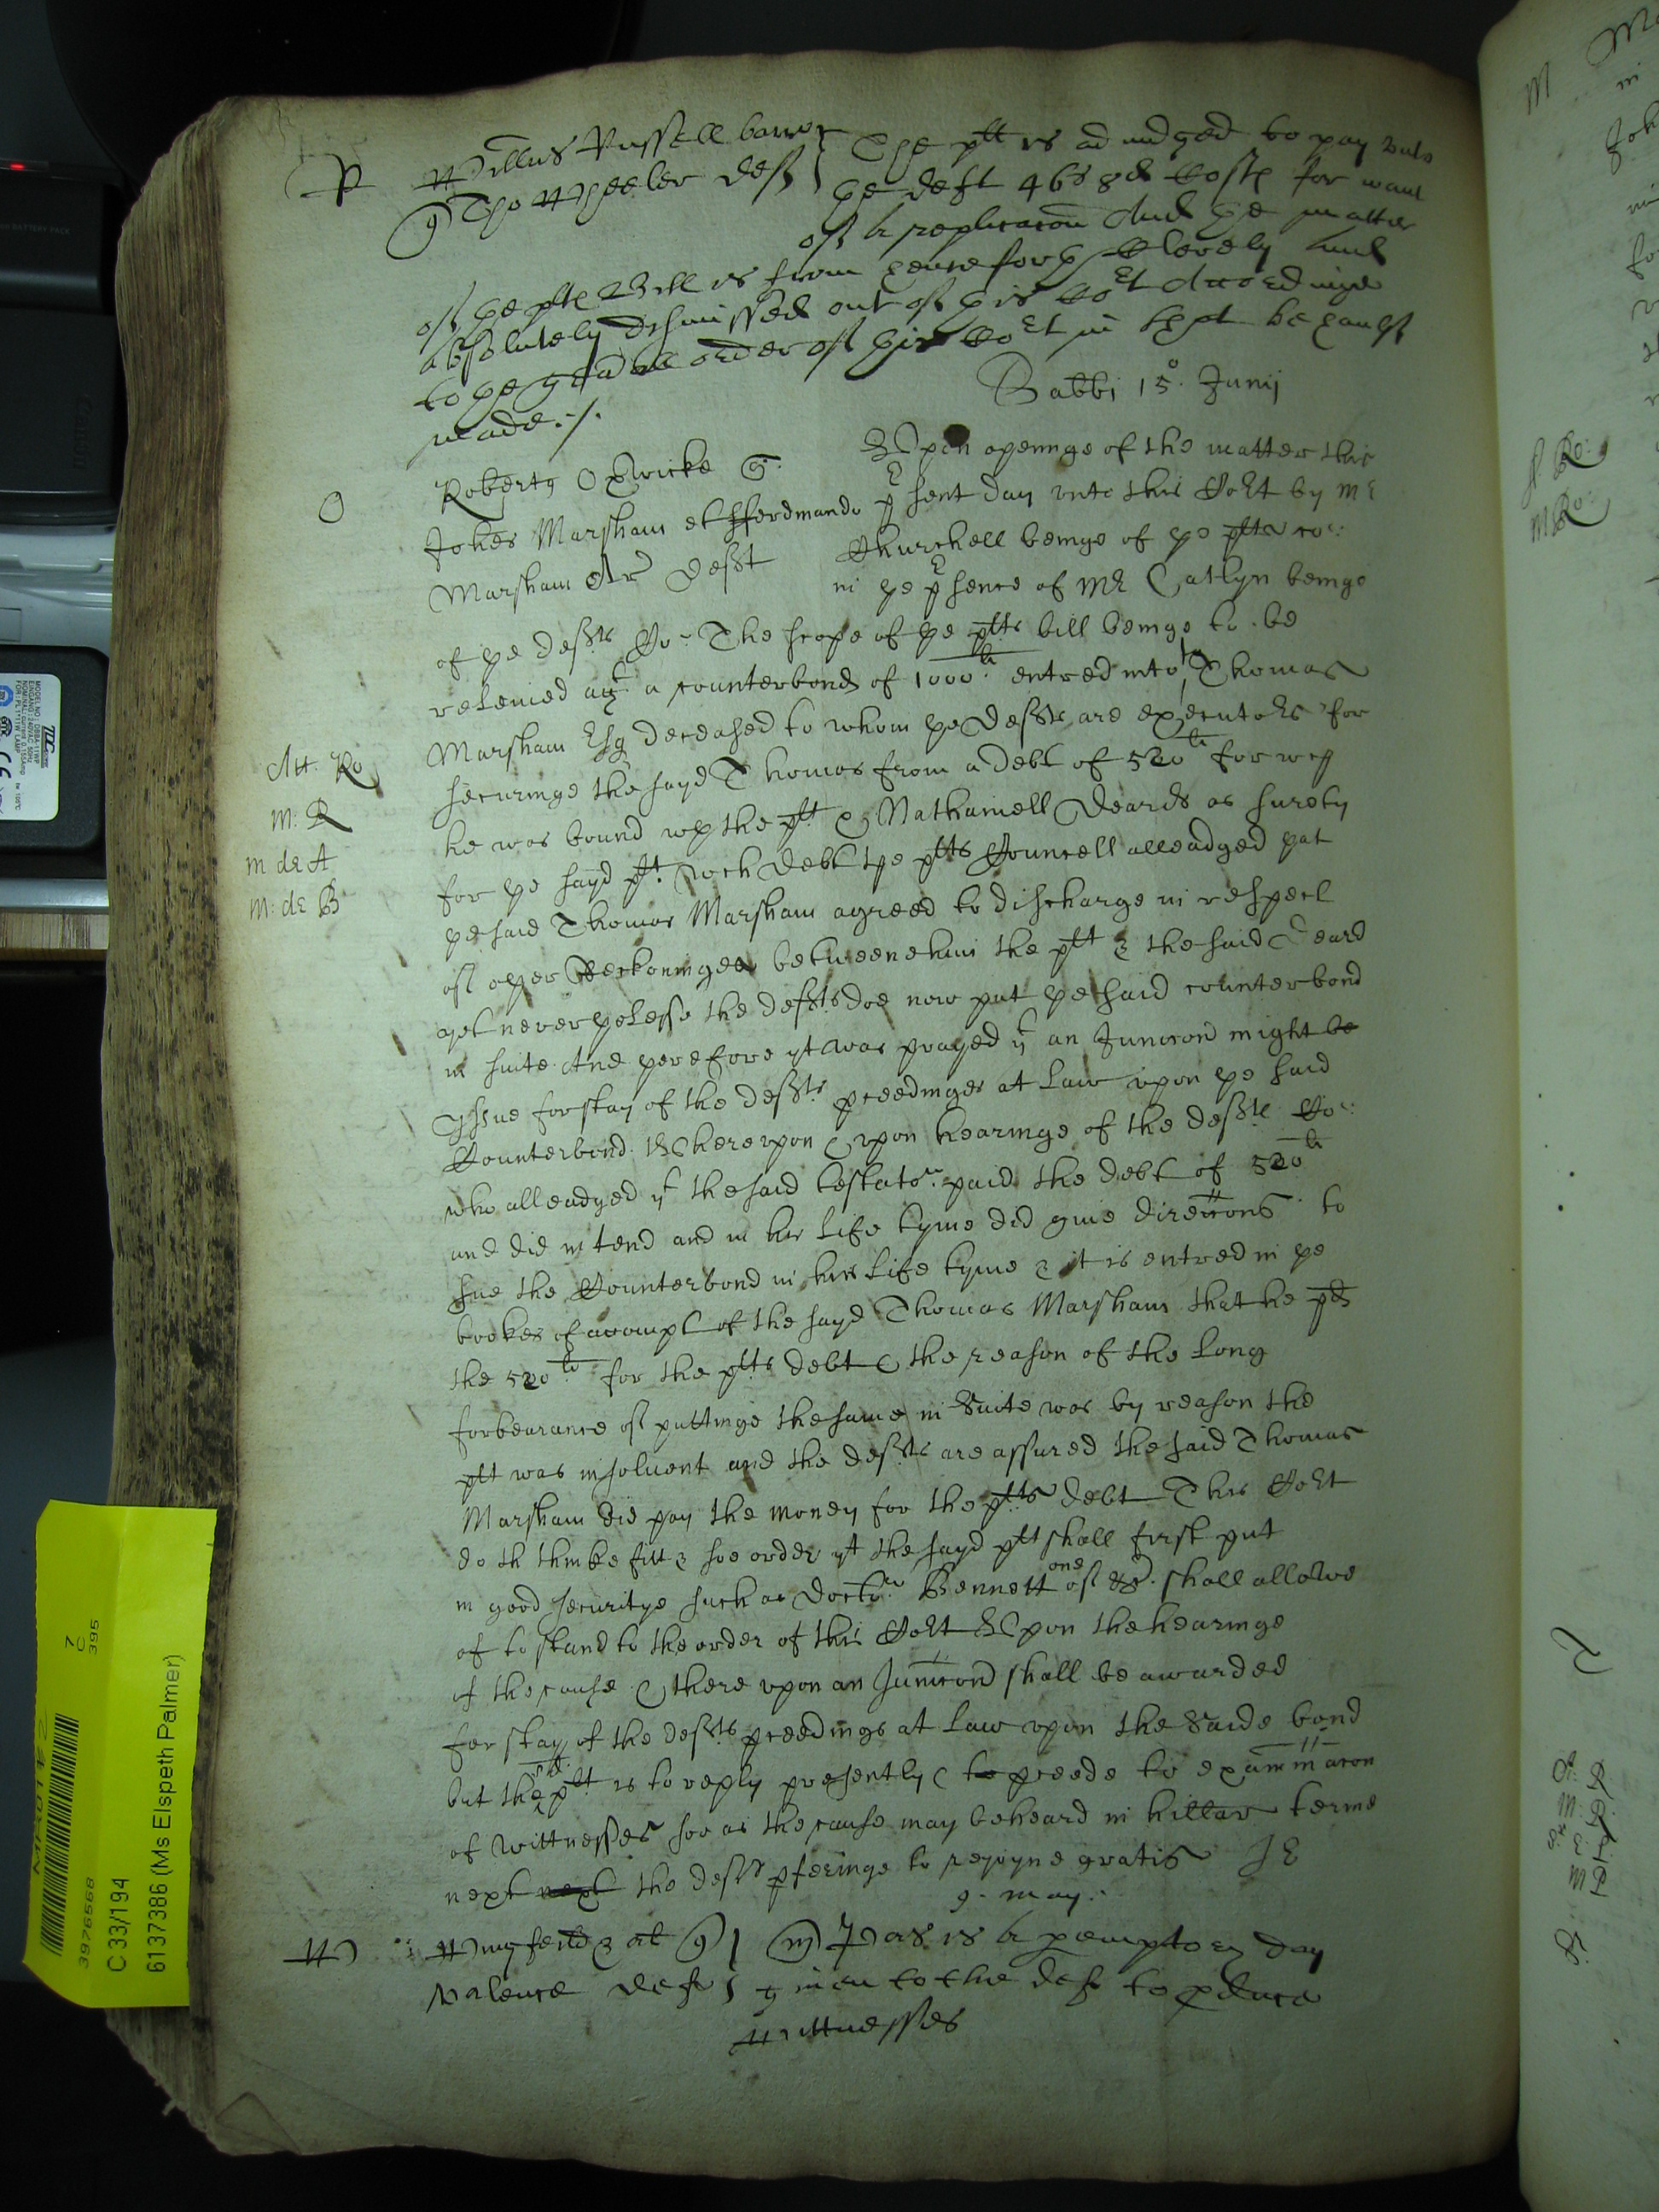 R Willus Russell barro
Tho Wheeler deft
The plt is adiudged to pay unto
ye deft 46s 8d costs for want
of a replicacon And ye matter
of ye plts Bill is from henceforth clerely and
absolutely dismissed out of this Cort According
to ye order of this Cort in yt behaulf
made ./.
Sabbi 15o Junij
O Robertus Oxwicke G:
Johes Marsham et fferdinando
Marsham Ar Defts
Upon openinge of the matter this
psent day unto this Cort by Mr
Churchell beinge of ye plts co:
in ye psence of Mr Catlyn beinge
of ye defts Co: The scope of ye plts bill beinge to be
releived agt a counterbond of 1000li entred into to Thomas
Marsham Esq deceased to whom ye Defts are executors for
securinge the sayd Thomas from a debt of 520li for wch
he was bound wth the plt & Nathaniell Deards as surety
for ye sayd plt. wch Debt the plts Councell alleadged yat
ye said Thomas Marsham agreed to discharge in respect
of oyer Reckoninges betweene him the plt & the said Deard
yet neverthelesse the defts doe now put ye said counterbond
in suite And yerefore yt was prayed yt an Iunccon might be
yssue for stay of the defts pceedinges at Law upon ye said
Counterbond. Whereupon & upon hearinge of the defts Co:
who alleadged yt the said testator paid the debt of 520li
and did intend and in his life tyme did give direccons to
sue the Counterbond in his life tyme & it is entred in ye
bookes of accompt of the sayd Thomas Marsham that he pd
the 520li for the plts debt & the reason of the long
forbearance of puttinge the same in Suite was by reason the
plt was insolvent and the defts are assured the said Thomas
Marsham did pay the money for the plts debt This Cort
doth thinke fitt & soe order yt the sayd plt shall first put
in good securitye such as Doctor Bennett one of &c. shall allowe
of to stand to the order of this Cort Upon the hearinge
of the cause & thereupon an Iunccon shall be awarded
for stay of the defts pceedings at Law upon the Saide bond
but the sd plt is to reply presently & to pceede to examinacon
of wittnesses soe as the cause may be heard in hillar terme
next next the defts pferinge to rejoyne gratis J E
Att. Ro
M: R
M de A
M: de B
9. May.
W Wingfeild & al
Valence deft
is a pemptory Day
given to the deft to pduce
wittnesses
C 33/194
6137386 (Ms Elspeth Palmer)
3976568
7
C
395